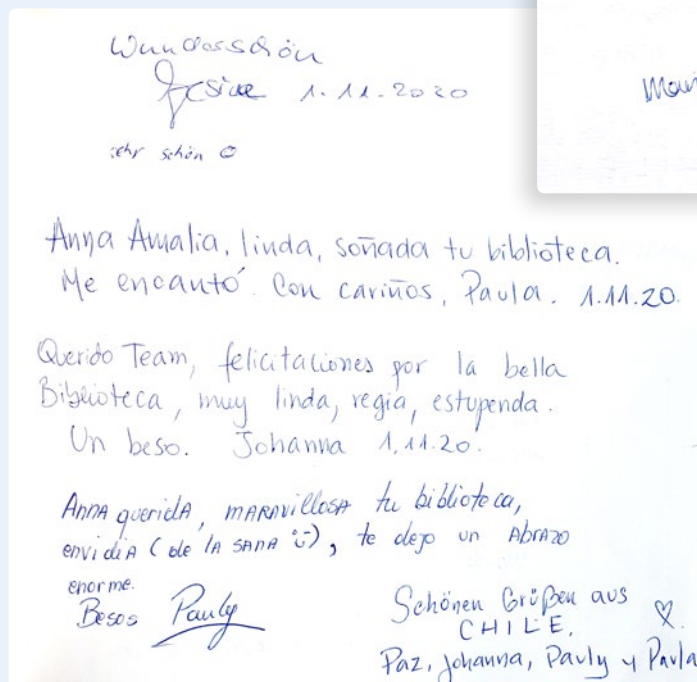 Wunderschön
1.11.2020
sehr schön ☺
Anna Amalia, linda, soñada tu biblioteca.
Me encantó. Con cariños, Paula. 1.11.20.
Querido Team, felicitaciones por la bella
Biblioteca, muy linda, regia, estupenda.
Un beso. Johanna 1.11.20.
Anna queridA, mARAvillosA tu biblioteca,
envidiA (de lA sANA ü), te dejo un AbrAzo
enorme.
Besos Pauly
Schönen Grüßen aus
CHILE, ♡.
Paz, Johanna, Pauly y Paula